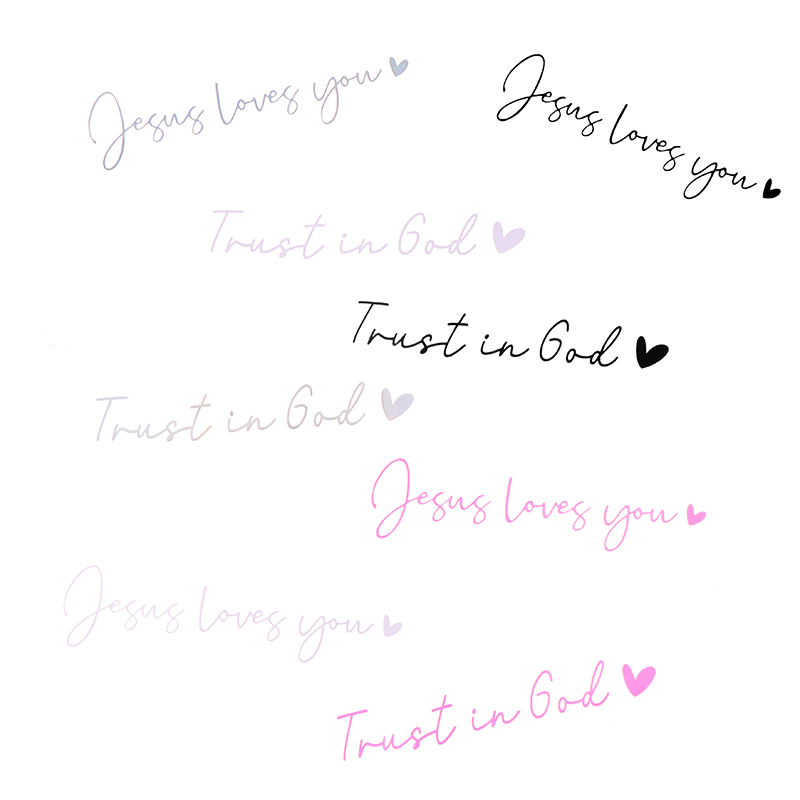 Jesus loves you
Jesus loves you
Trust in God
Trust in God
Trust in God
Jesus loves you
Jesus loves you
Trust in God